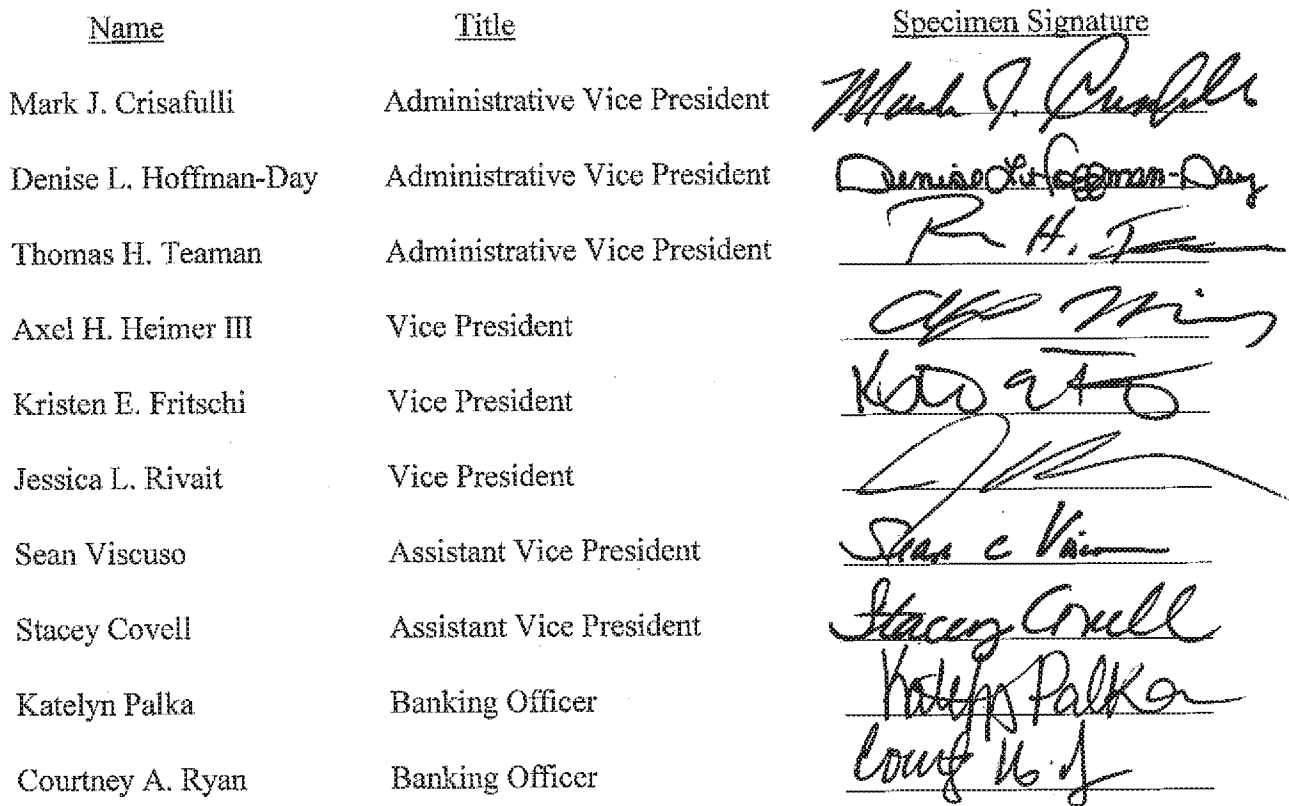 Name Title Specimen Signature
Mark J. Crisafulli Administrative Vice President Mark J.
Denise L. Hoffman-Day Administrative Vice President Denise L. Hoffman-Day
Thomas H. Teaman Administrative Vice President H.
Axel H. Heimer III Vice President
Kristen E. Fritschi Vice President
Jessica L. Rivait Vice President
Sean Viscuso Assistant Vice President Sean C
Stacey Covell Assistant Vice President Stacey Covell
Katelyn Palka Banking Officer Palka
Courtney A. Ryan Banking Officer